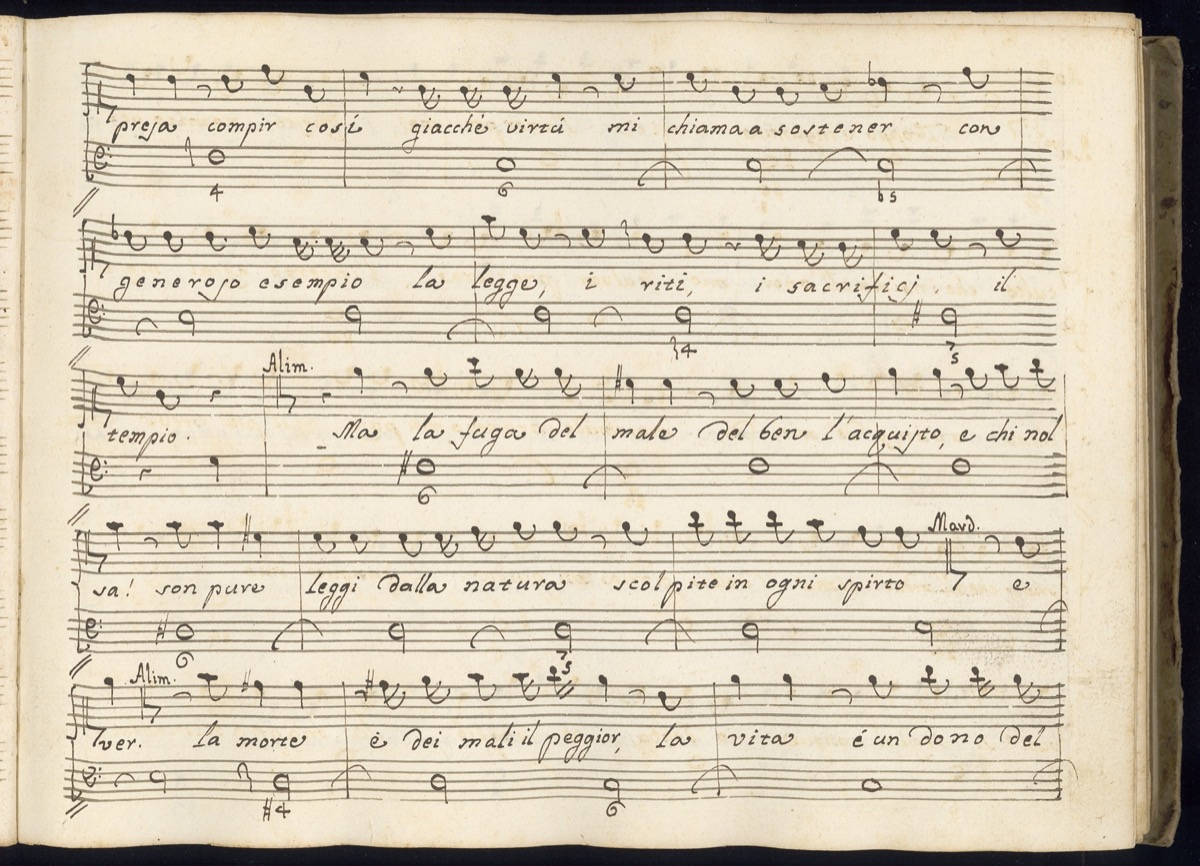 presa compir così giacchè virtù mi chiama a sostener con
4 6 b5
generoso esempio la legge, i riti, i sacrificj. il
4 7 5
Alim.
tempio. Ma la fuga del male del ben l'acquisto, e chi nol
6
Mard.
sa! son pure leggi dalla natura scolpite in ogni spirto e
6 7 5
Alim.
ver. la morte è dei mali il peggior, la vita é un dono del
#4 6